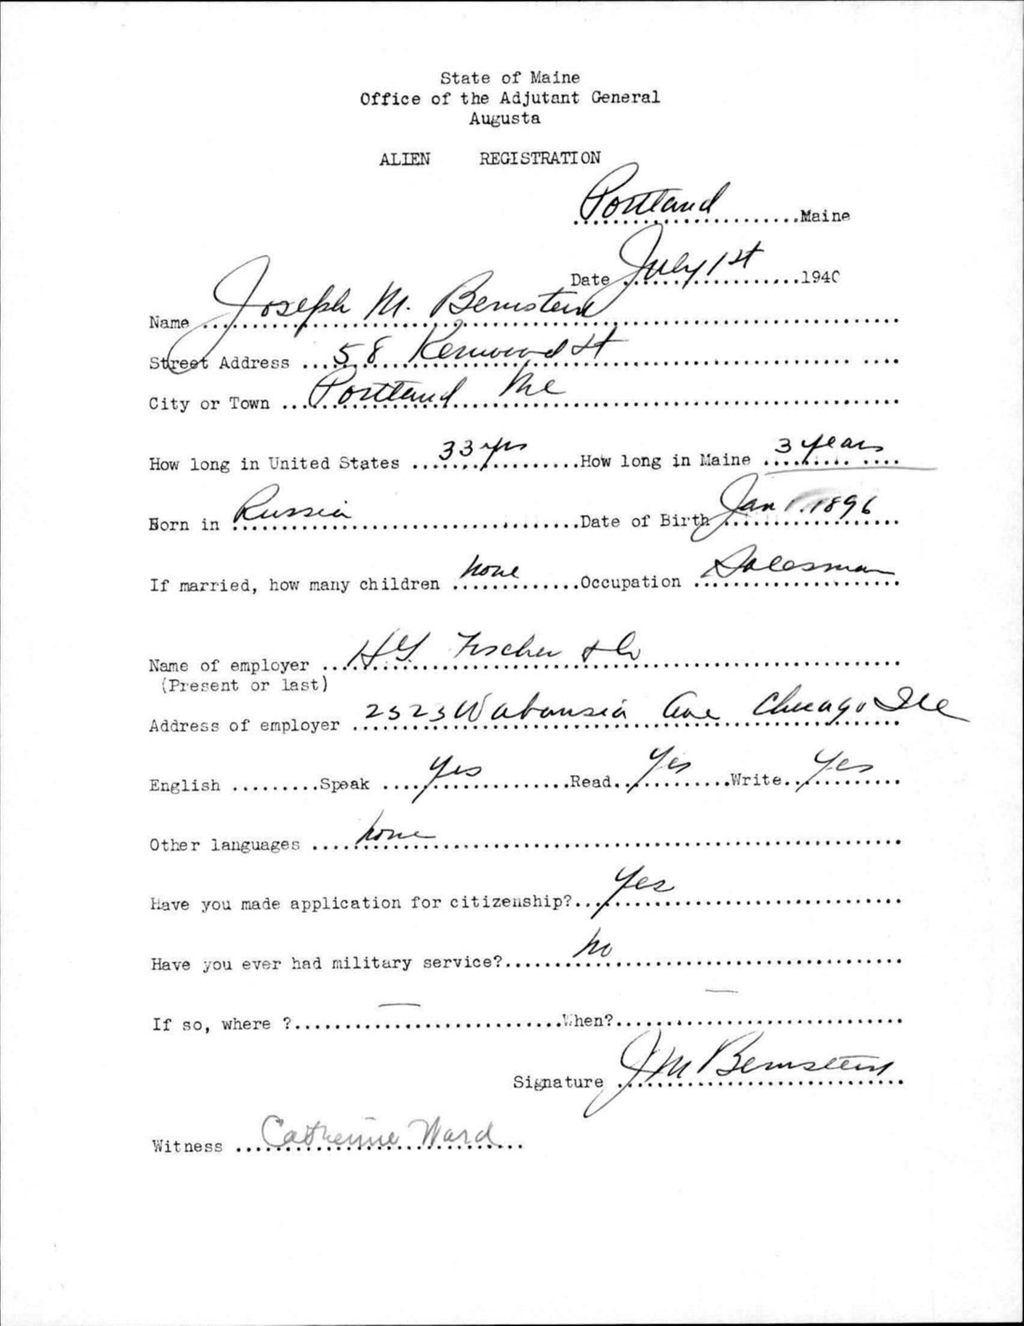 State of Maine
Office of the Adjutant General
Augusta
ALIEN REGISTRATION
Portland Maine
Date July 1st 1940
Name Joseph M. Bernstein
Street Address 58 Kenwood St
City or Town Portland Me
How long in United States 33 yrs How long in Maine 3 years
Born in Russia Date of Birth Jan 1. 1896
If married, how many children none Occupation Salesman
Name of employer HG Fischer & Co
(Present or last)
Address of employer 2323 Wabansia Ave Chicago Ill
English Speak Yes Read Yes Write Yes
Other languages none
Have you made application for citizenship? Yes
Have you ever had military service? no
If so, where ? — When? —
Signature JM Bernstein
Witness Catherine Ward